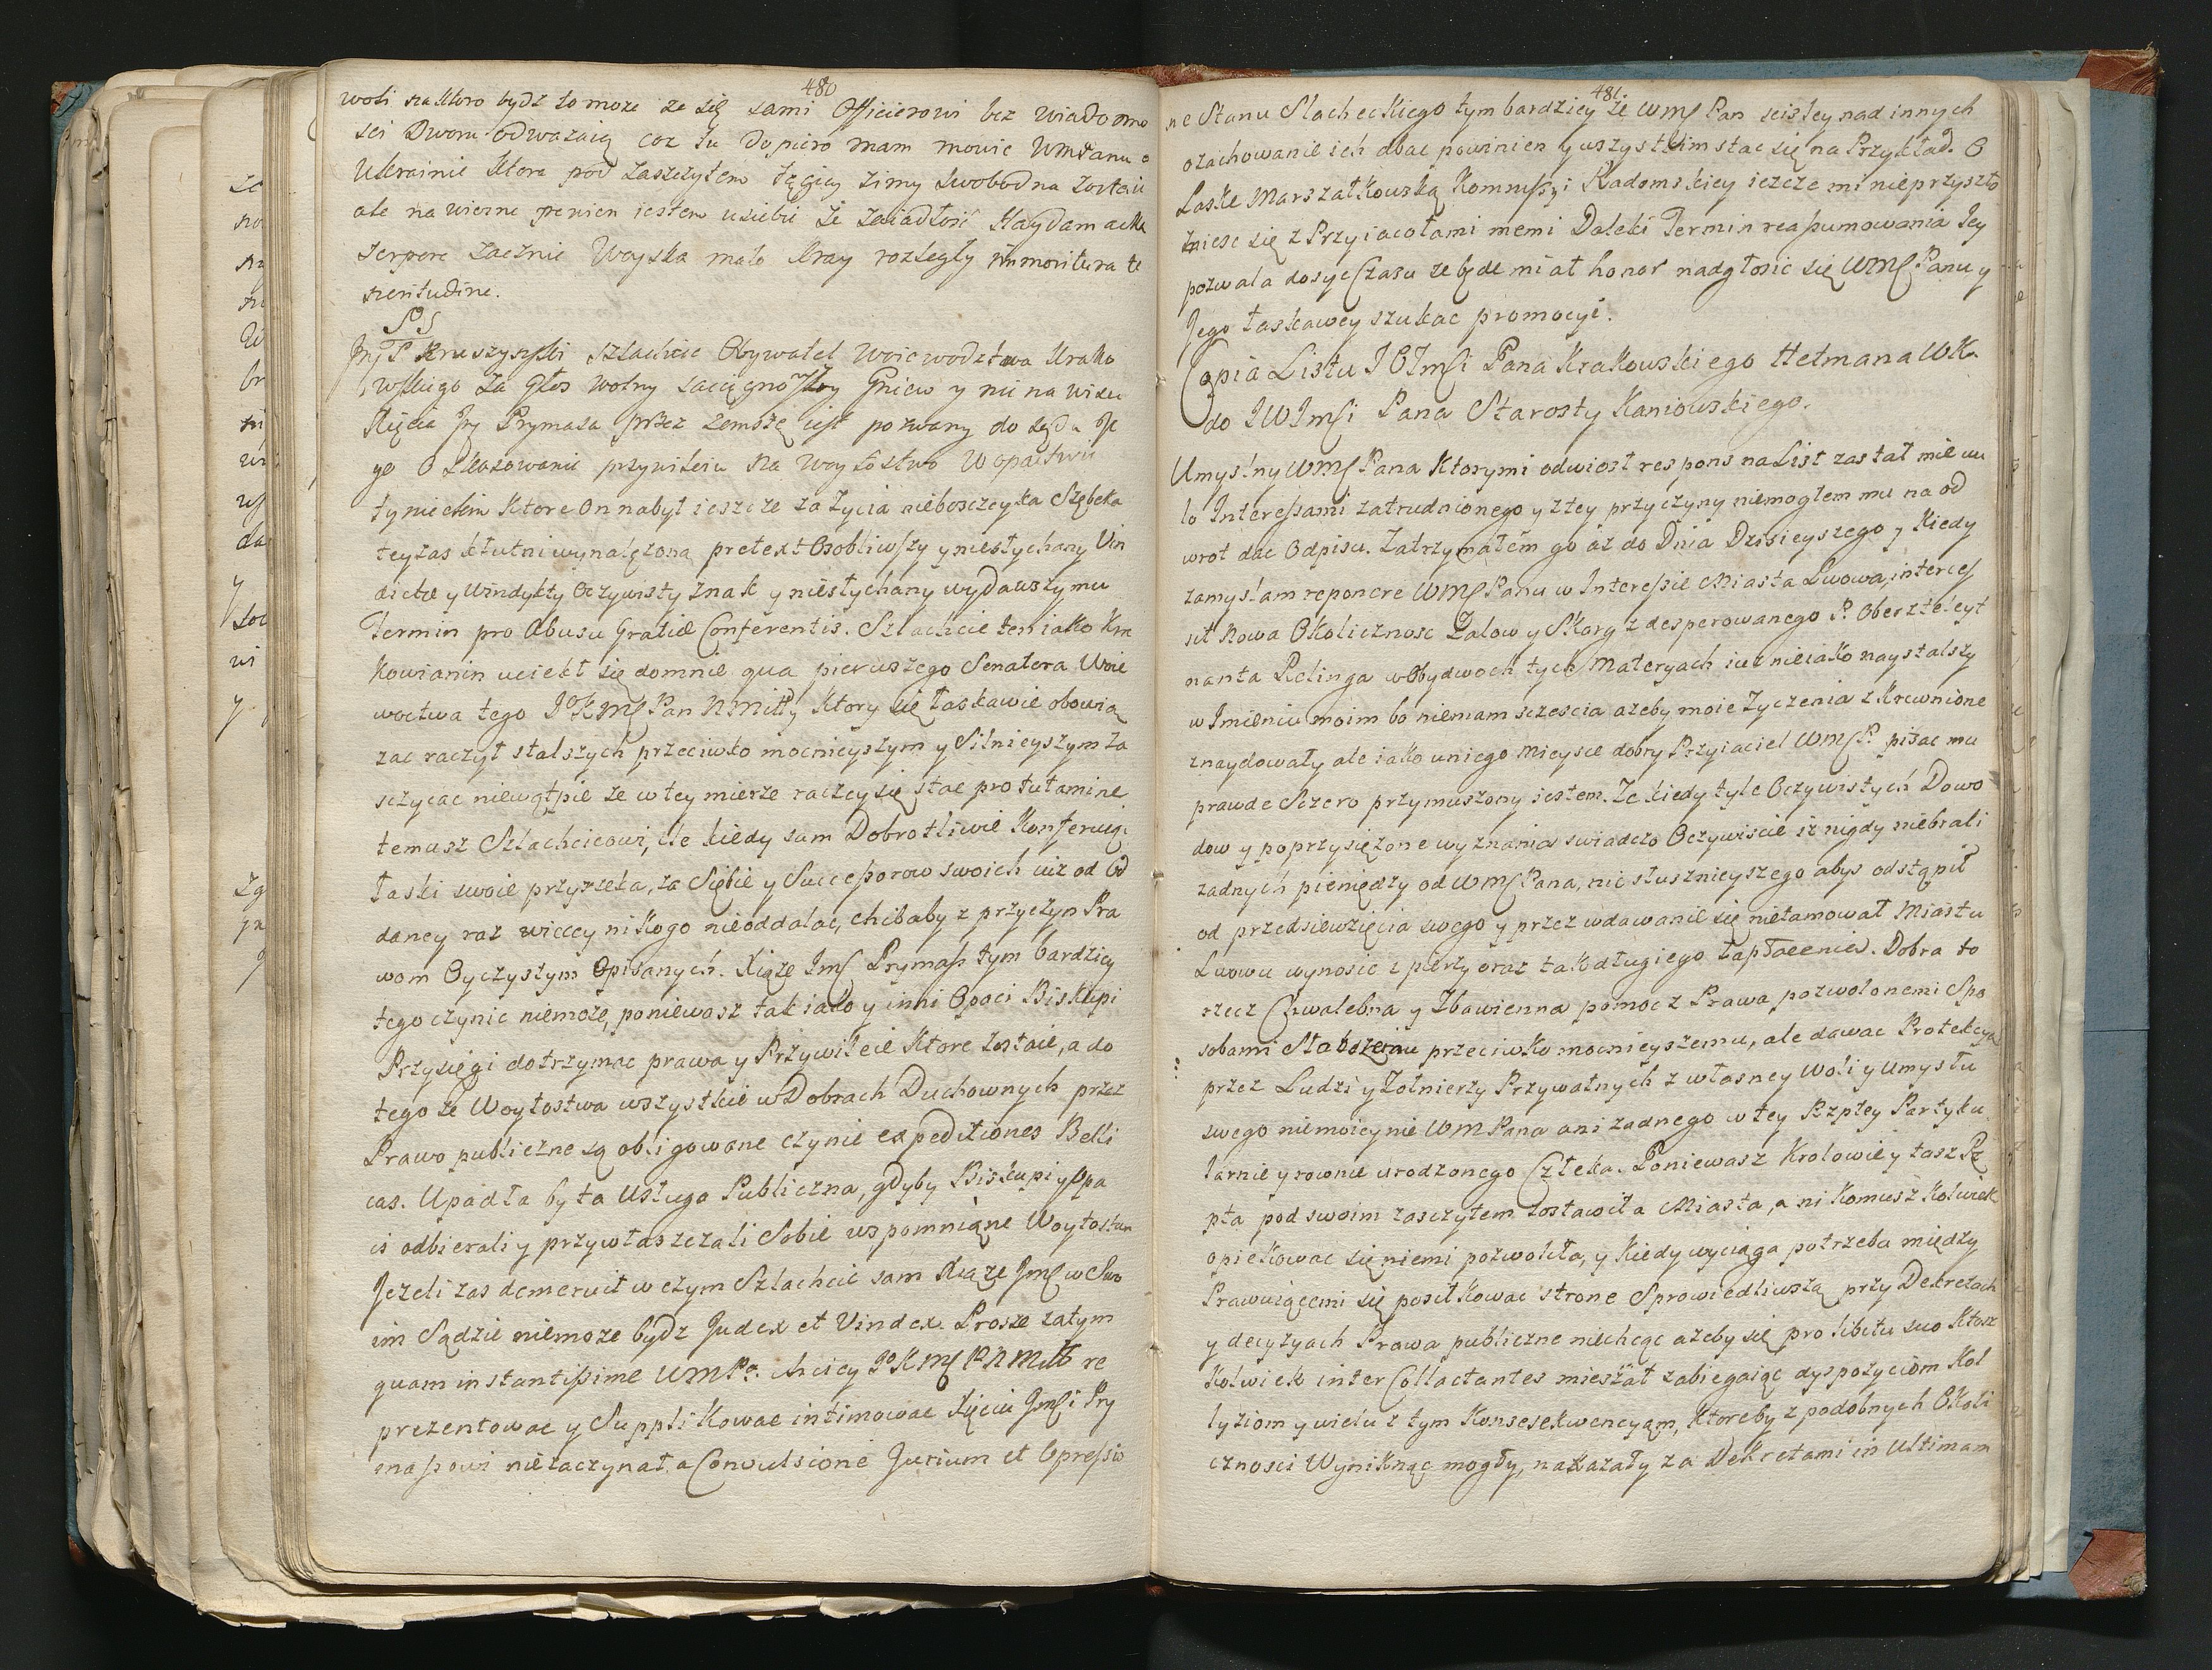 480
woli na ktoro bydz to moze ze się sami Officierowi bez wiadomo
sci Dworu odwazaią coz tu dopiero mam mowic WmPanu o
Ukrainie ktora pod zaszczytem tęgiey zimy swobodna zostaie
ale na wiosne pewien iestem u siebie że zaiadłość Haydamacka
serpere zacznie Woyska mało kray rozległy
PS
Jmć P Kruszynski szlachcic Obywatel Woiewodztwa Krako
wskiego za głos wolny zaciągnowszy Gniew y nienawisc
Xięcia Jmci Prymasa przez zemstę iest pozwany do Sądu Je
go O Skasowanie przywileiu na Woytostwo W opactwie
tynieckim ktore On nabył ieszcze za życia nieboszczyka Szębeka
tey zas kłutni wynalęzona pretext Osobliwszy y niesłychany Vin
dictæ y Windykty Oczywisty znak y niesłychany wydawszy mu
Termin pro Abusu Gratiæ Conferentis. Szlachcic ten iako Kra
kowianin uciekł się do mnie qua pierwszego Senatora Woie
woctwa tego JoKMć Pan NMiłłł ktory się łaskawie obowią
zac raczył słabszych przeciwko mocnieyszym y Silnieyszym za
sczycac niewątpie ze w tey mierze raczey się stac pro tutamine
temusz Szlachcicowi, ile kiedy sam Dobrotliwie Konferuiąc
łaski swoie przyrzeka, za Siębie y Successorow swoich iuz od Od
daney raz wiecey nikogo nieoddalac, chibaby z przyczyn Pra
wom Oyczystym Opisanych. Xiąze Jmć Prymass tym bardziey
tego czynic niemoże, poniewasz tak iako y inni Opaci Biskupi
Przysięgi dotrzymac prawa y Przywileie Ktore zostaie, a do
tego że Woytostwa wszystkie w Dobrach Duchownych przez
Prawo publiczne są obligowane czynic expeditiones Belli
cas. Upadła by ta Usługa Publiczna, gdyby Biskupi y Opa
ci odbierali y przywłaszczali Sobie wspomniąne Woytostwa
Jezeli zas demeruit w czym Szlachcic sam Xiąze Jmć w Swo
im Sądzie niemoze bydz Judex et Vindex. Prosze zatym
quam instantissime WMPa. chciey JoKMć PNMiłł re
prezentowac y Supplikowac intimowac Xięciu Jmći Pry
massowi niezaczynał a Convulsione Jurium et Opressio
481.
ne Stanu Slacheckiego tym bardziey że WMć Pan scisley nad innych
ozachowanie ich dbac powinien y wszystkim stac się na Przykład. O
Laske Marszałkowską Kommissyi Radomskiey iezcze mi nieprzyszło
zniesc się z Przyiaciołami memi Daleki Termin reassumowania Jey
pozwala dosyc Czasu ze będe miał honor nadgłosic się WMć Panu y
Jego łaskawey szukac promocyi.
Copia Listu JOJmći Pana Krakowskiego Hetmana WK.
do JWJmći Pana Starosty Kaniowskiego.
Umyslny WMć Pana Ktorymi odwiosł respons na List zastał mie wie
lo Interessami zatrudnionego y z tey przyczyny niemogłem mu na od
wrot dac Odpisu. Zatrzymałem go aż do Dnia Dzisieyszego y Kiedy
zamyslam reponere WMć Panu w Interessie Miasta Lwowa, interces
sit Nowa Okolicznosc Zalow y Skarg zdesperowanego P. Oberszteleyt
nanta Relinga w Obydwoch tych Materyach iuz nieiako naystalszy
w Jmieniu moim bo niemam sczescia ażeby moie Zyczenia z Krewnione
znaydowały ale iako uniego Mieysce dobry Przyiaciel WMćP. pisac mu
prawde Sczero przymuszony iestem. Ze kiedy tyle Oczywistych Dowo
dow y poprzysiężone wyznania swiadczo Oczywiscie iż nigdy niebrali
zadnych pieniędzy od WMć Pana, nic słusznieyszego abys odstąpił
od przedsiewzięcia swego y przez wdawanie się nietamował Miastu
Lwowu wynosic z pierzy oraz tak długiego . Dobra to
rzecz Chwalebna y Zbawienna pomoc z Prawa pozwolonemi Spo
sobami Słabszemu przeciwko mocnieyszemu, ale dawac Protekcyą
przez Ludzi y Zołnierzy Przywatnych z własney Woli y Umysłu
swego niemoiey nie WMPana ani zadnego w tey Rzptey Partyku
larnie y rownie urodzonego Człeka. Poniewasz Krolowie y tasz Rz
pta pod swoim zasczytem zostawiła Miasta, a ni Komusz Kolwiek
opiekowac się niemi pozwoliła, y Kiedy wyciąga potrzeba między
Prawuiącemi się posiłkowac strone Sprawiedliwszą przy Dekretach
y decyzyach Prawa publiczne niechcąc ażeby się pro libitu suo Ktosz
Kolwiek inter Collactantes mieszał zabiegaiąc dyspozyciom Kol
lyziom y wielu z tym Konsesekwencyam, Ktoreby z podobnych Okoli
cznosci Wyniknąc mogły, nakazały za Dekretami in Ultimam